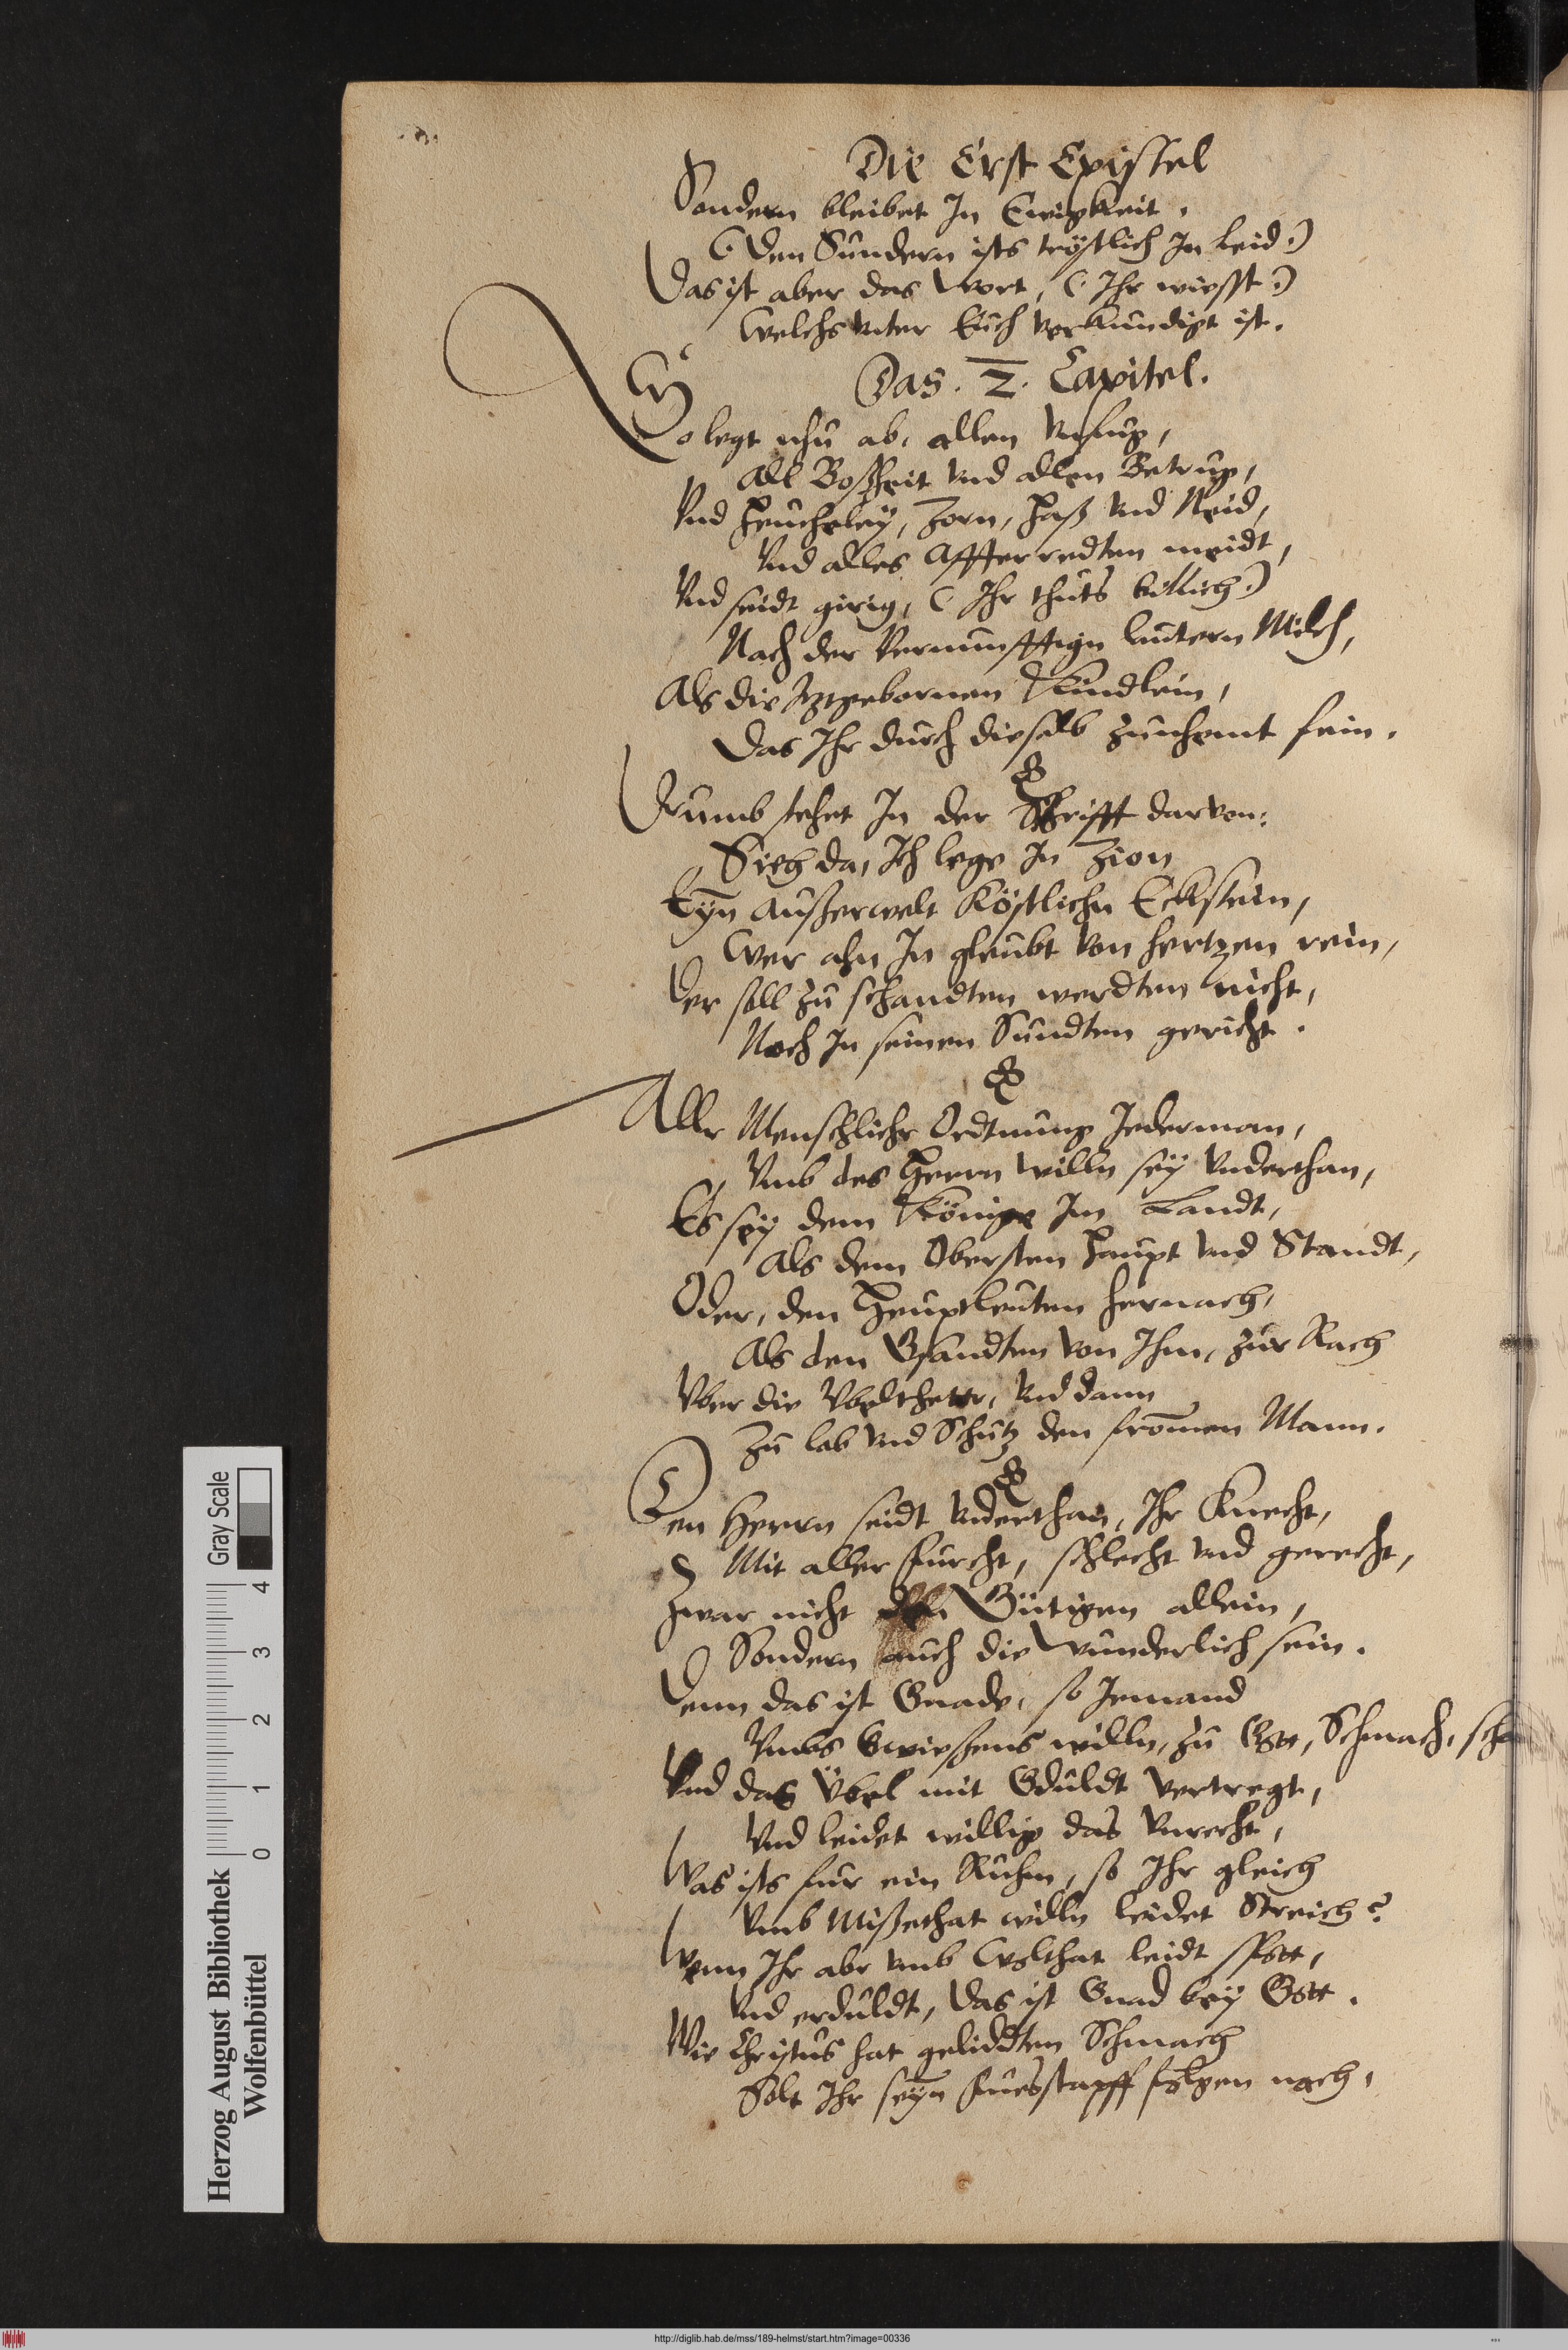 Die Erst Epistel
Sondern bleibet In Ewigkeit.
(Den Sündern ists tröstlich In leid.)
Das ist aber das Wort, (Ihr wiesst.)
Welchs vnter Euch verkündigt ist.
Das. 2. Capitel.
So legt nhu ab, allen vnfug,
All Boßheit vnd allen Betrug,
Vnd Heucheley, Zorn, Haß vnd Neid,
Vnd alles Affterredten meidt,
Vnd seidt girig, (Ihr thuts billich.)
Nach der Vernünfftign lautern Milch,
Als die Itzgebornen Kindlein,
Das Ihr durch dieselb zunhemt fein.
Drumb stehet In der Schrifft darvon:
Sieh da, Ich lege In Zion
Eyn außerwelt Köstlichn Eckstein,
Wer ahn In gleubt von hertzen rein,
Der soll zu schandten werdten nicht,
Noch In seinen Sündten gericht.
Aller Menschlicher Ordtnung Jederman,
Vmb des Herrn willn sey vnderthan,
Es sey dem Könige Im Landt,
Als dem Obersten Haupt vnd Standt,
Oder, den Heuptleuten hernach,
Als den Gsandten von Ihm, zur Rach
Vber die Vbelthetter, vnd dann
Zu lob vnd Schutz den fromen Mann.
Den Herrn seidt vnderthan, Ihr Knecht,
Mit aller furcht, schlecht vnd gerecht,
Zwar nicht den Gütigen allein,
Sondern auch die wunderlich sein.
Denn das ist Gnade, so Jemand
Vmbs Gwießens willn, zu Gott, Schmach,
Vnd das Übel mit Gduldt vertregt,
Vnd leidet willig das vnrecht,
Was ists fur ein Ruhm, so Ihr gleich
Vmb Mißethat willn leidet Streich?
Wenn Ihr abr vmb Wolthat leidt spott,
Vnd erduldt, das ist Gnad bey Gott.
Wie Christus hat geliddten Schmach
Solt Ihr seyn fuesstapff folgen nach,
Herzog August Bibliothek
Wolfenbüttel
0 1 2 3 4
Gray Scale
http://diglib.hab.de/mss/189-helmst/start.htm?image=00336